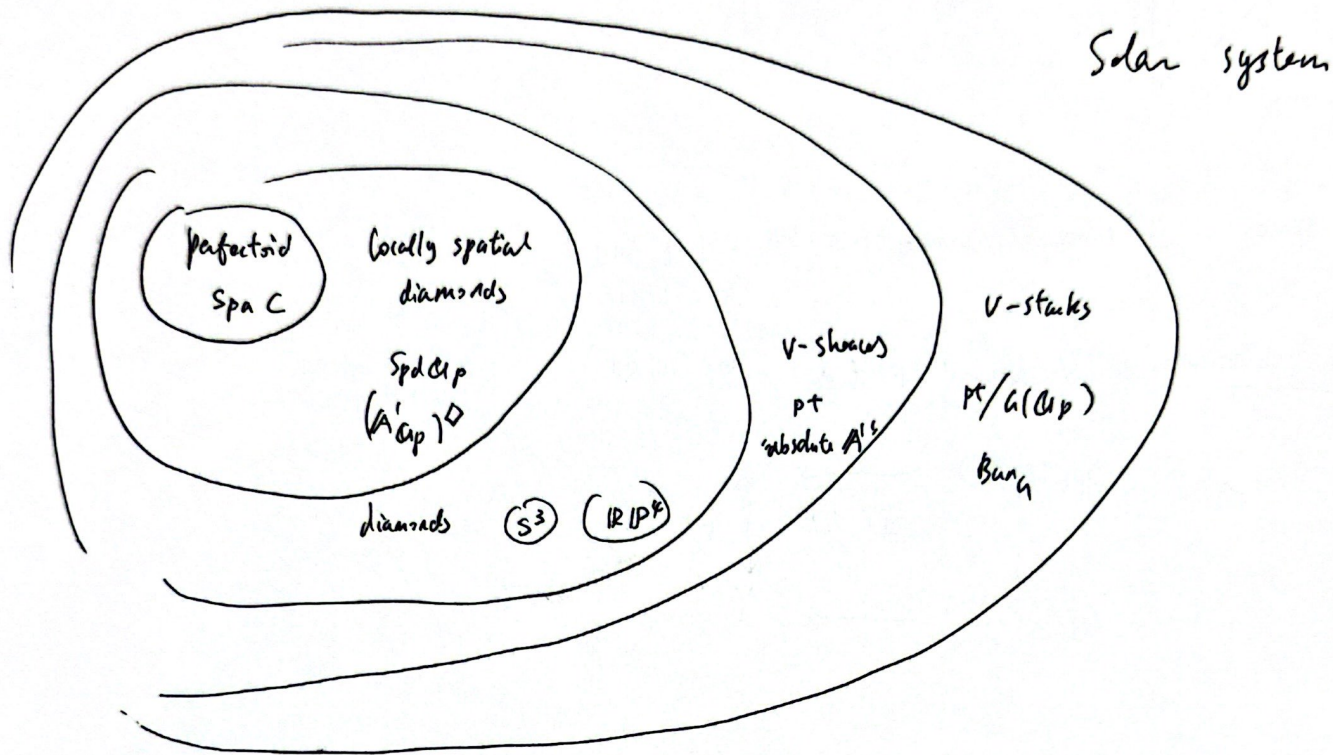 Solar system
perfectoid
Spa C
locally spatial
diamonds
Spd ℚp
(𝔸¹ℚp)◇
diamonds
S³
ℝℙ⁴
v-sheaves
pt
absolute 𝔸¹'s
v-stacks
pt/G(ℚp)
BunG